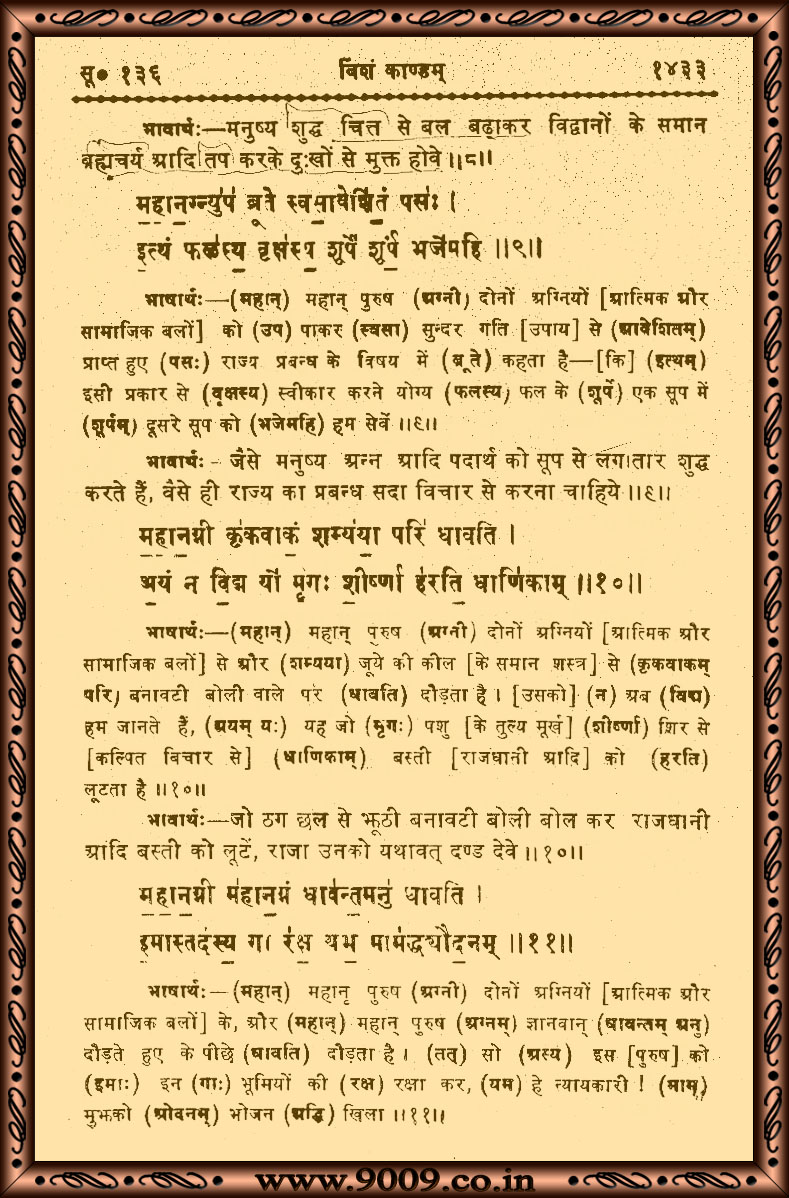 सू० १३६ विंशं काण्डम् १४३३
भावार्थः—मनुष्य शुद्ध चित्त से बल बढ़ाकर विद्वानों के समान
ब्रह्मचर्य आदि तप करके दुःखों से मुक्त होवे ॥८॥
म॒हा॒न॒ग्न्यु॑प॑ ब्रूते स्वसा॒वेशि॑तं पसः॑ ।
इ॒त्थं फल॑स्य॒ वृक्ष॑स्य॒ शूर्पे॑ शूर्पं॒ भजे॑महि ॥९॥
भाषार्थः—(महान्) महान् पुरुष (अग्नी) दोनों अग्नियों [आत्मिक और
सामाजिक बलों] को (उप) पाकर (स्वसा) सुन्दर गति [उपाय] से (आवेशितम्)
प्राप्त हुए (पसः) राज्य प्रबन्ध के विषय में (ब्रूते) कहता है—[कि] (इत्थम्)
इसी प्रकार से (वृक्षस्य) स्वीकार करने योग्य (फलस्य) फल के (शूर्पे) एक सूप में
(शूर्पम्) दूसरे सूप को (भजेमहि) हम सेवें ॥९॥
भावार्थः - जैसे मनुष्य अन्न आदि पदार्थ को सूप से लगातार शुद्ध
करते हैं, वैसे ही राज्य का प्रबन्ध सदा विचार से करना चाहिये ॥९॥
म॒हा॒न॒ग्नी कृ॑कवाकं॒ शम्य॑या॒ परि॑ धावति ।
अ॒यं न वि॒द्म यो॑ मृ॒गः शी॒र्ष्णा ह॑रति॒ धाणि॑काम् ॥१०॥
भाषार्थः—(महान्) महान् पुरुष (अग्नी) दोनों अग्नियों [आत्मिक और
सामाजिक बलों] से और (शम्यया) जूये की कील [के समान शस्त्र] से (कृकवाकम्
परि) बनावटी बोली वाले पर (धावति) दौड़ता है । [उसको] (न) अब (विद्म)
हम जानते हैं, (अयम् यः) यह जो (मृगः) पशु [के तुल्य मूर्ख] (शीर्ष्णा) शिर से
[कल्पित विचार से] (धाणिकाम्) बस्ती [राजधानी आदि] को (हरति)
लूटता है ॥१०॥
भावार्थः—जो ठग छल से झूठी बनावटी बोली बोल कर राजधानी
आदि बस्ती को लूटें, राजा उनको यथावत् दण्ड देवे ॥१०॥
म॒हा॒न॒ग्नी म॑हान॒ग्नं धाव॑न्त॒मनु॑ धावति ।
इ॒मास्तद॑स्य॒ गा र॑क्ष॒ यभ॒ माम॑द्ध्यौद॒नम् ॥११॥
भाषार्थः—(महान्) महान् पुरुष (अग्नी) दोनों अग्नियों [आत्मिक और
सामाजिक बलों] के, और (महान्) महान् पुरुष (अग्नम्) ज्ञानवान् (धावन्तम् अनु)
दौड़ते हुए के पीछे (धावति) दौड़ता है । (तत्) सो (अस्य) इस [पुरुष] को
(इमाः) इन (गाः) भूमियों की (रक्ष) रक्षा कर, (यम) हे न्यायकारी ! (माम्)
मुझको (ओदनम्) भोजन (अद्धि) खिला ॥११॥
www.9009.co.in